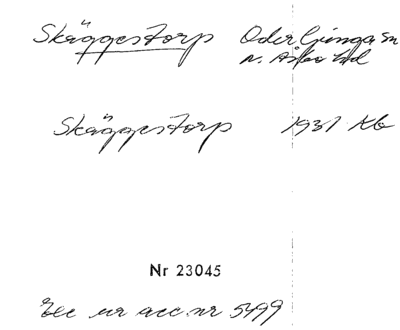 Skäggestorp Oderljunga sn
N. Åsbo hd
Skäggestorp 1931 Kb
Nr 23045
Exc ur acc. nr 5499